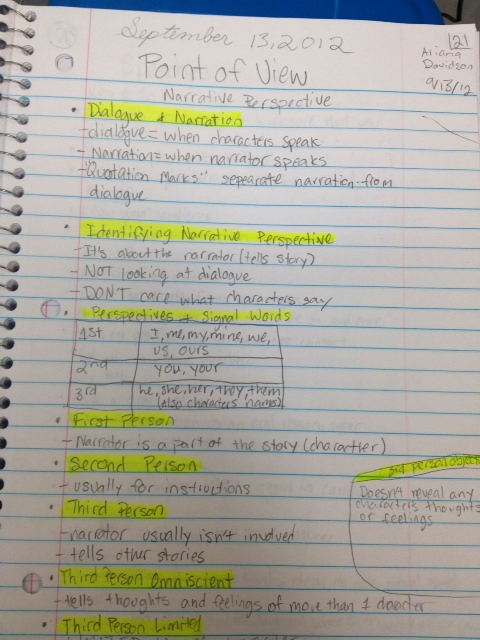 September 13, 2012
121
Ariana
Davidson
9/13/12
Point of View
Narrative Perspective
• Dialogue & Narration
- dialogue = when characters speak
- Narration = when narrator speaks
- "Quotation Marks" sepearate narration from
dialogue
• Identifying Narrative Perspective
- It's about the narrator (tells story)
- NOT looking at dialogue
- DON'T care what characters say
• Perspectives + Signal Words
1st I, me, my, mine, we,
us, ours
2nd you, your
3rd he, she, her, they, them
(also characters names)
• First Person
- Narrator is a part of the story (charactier)
• Second Person
- usually for instructions
• Third Person
- narrator usually isn't involved
- tells other stories
3rd person objecti
Doesn't reveal any
characters thoughts
or feelings
• Third Person Omniscient
- tells thoughts and feelings of more than 1
• Third Person Limited